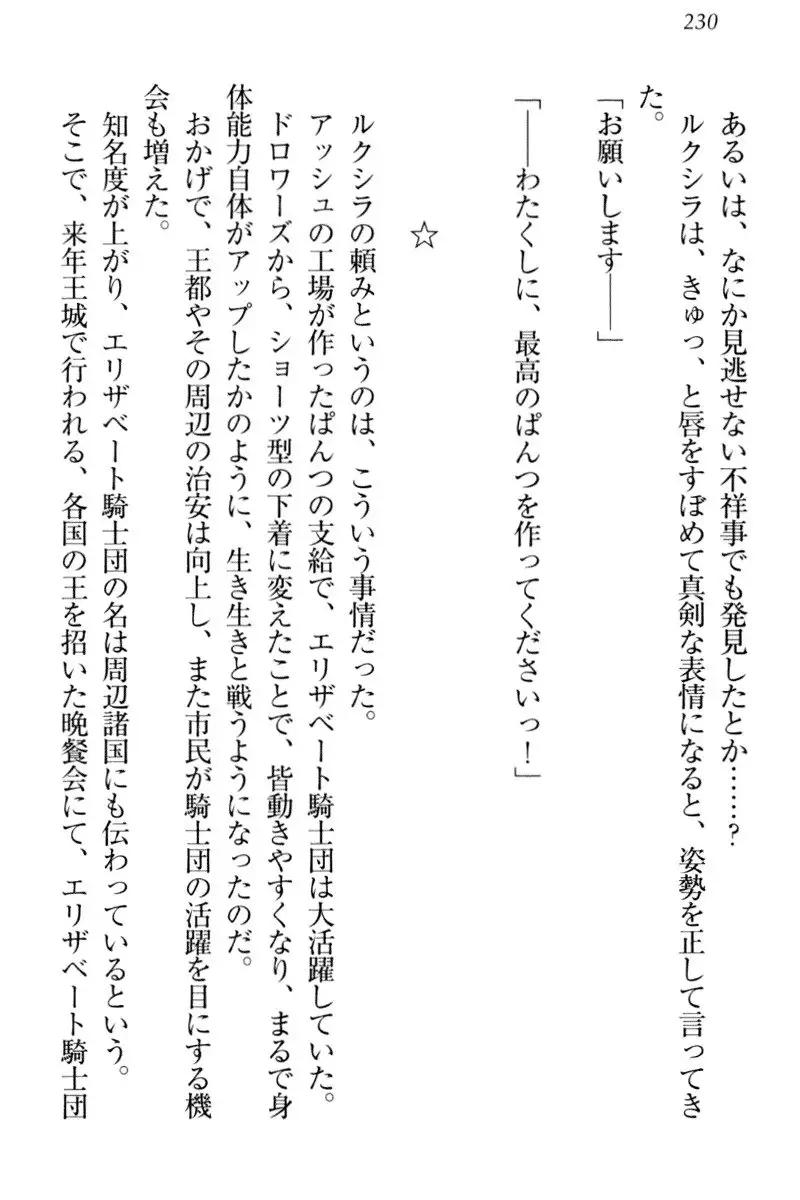 230
あるいは、なにか見逃せない不祥事でも発見したとか……?
ルクシラは、きゅっ、と唇をすぼめて真剣な表情になると、姿勢を正して言ってき
た。
「お願いします――」
「――わたくしに、最高のぱんつを作ってくださいっ！」
☆
ルクシラの頼みというのは、こういう事情だった。
アッシュの工場が作ったぱんつの支給で、エリザベート騎士団は大活躍していた。
ドロワーズから、ショーツ型の下着に変えたことで、皆動きやすくなり、まるで身
体能力自体がアップしたかのように、生き生きと戦うようになったのだ。
おかげで、王都やその周辺の治安は向上し、また市民が騎士団の活躍を目にする機
会も増えた。
知名度が上がり、エリザベート騎士団の名は周辺諸国にも伝わっているという。
そこで、来年王城で行われる、各国の王を招いた晩餐会にて、エリザベート騎士団